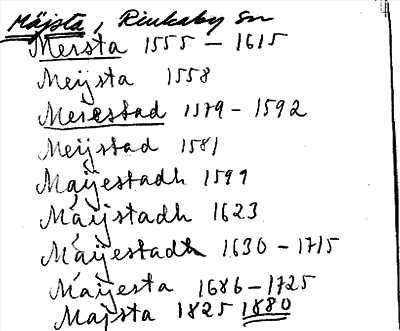 Mäjsta, Rinkaby sn
Mersta 1555 – 1615
Meijsta 1558
Merestad 1579 – 1592
Meijstad 1581
Maijestadh 1599
Maijstadh 1623
Maijestadh 1630 – 1715
Maijesta 1686 – 1725
Majsta 1825 1880